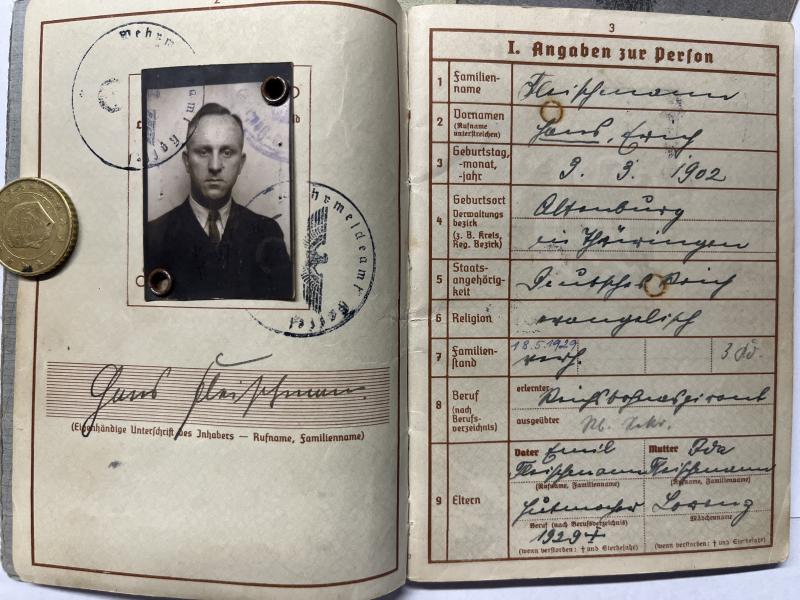 2
Wehrm
Wehrmeldeamt Kassel
Hans Fleischmann.
(Eigenhändige Unterschrift des Inhabers — Rufname, Familienname)
3
I. Angaben zur Person
1 Familien-
name
Fleischmann
2 Vornamen
(Rufname
unterstreichen)
Hans, Erich
3 Geburtstag,
-monat,
-jahr
9. 3. 1902
4 Geburtsort
Verwaltungs
bezirk
(z. B. Kreis,
Reg. Bezirk)
Altenburg
in Thüringen
5 Staats-
angehörig-
keit
Deutsches Reich
6 Religion
evangelisch
7 Familien-
stand
18.5.1929
verh.
3 Kd.
8 Beruf
(nach
Berufs-
verzeichnis)
erlernter
ausgeübter
9 Eltern
Vater Emil
Fleischmann
(Rufname, Familienname)
Hutmacher
Beruf (nach Berufsverzeichnis)
1929 †
(wenn verstorben: † und Sterbejahr)
Mutter Ida
Fleischmann
(Rufname, Familienname)
Lorenz
Mädchenname
(wenn verstorben: † und Sterbejahr)